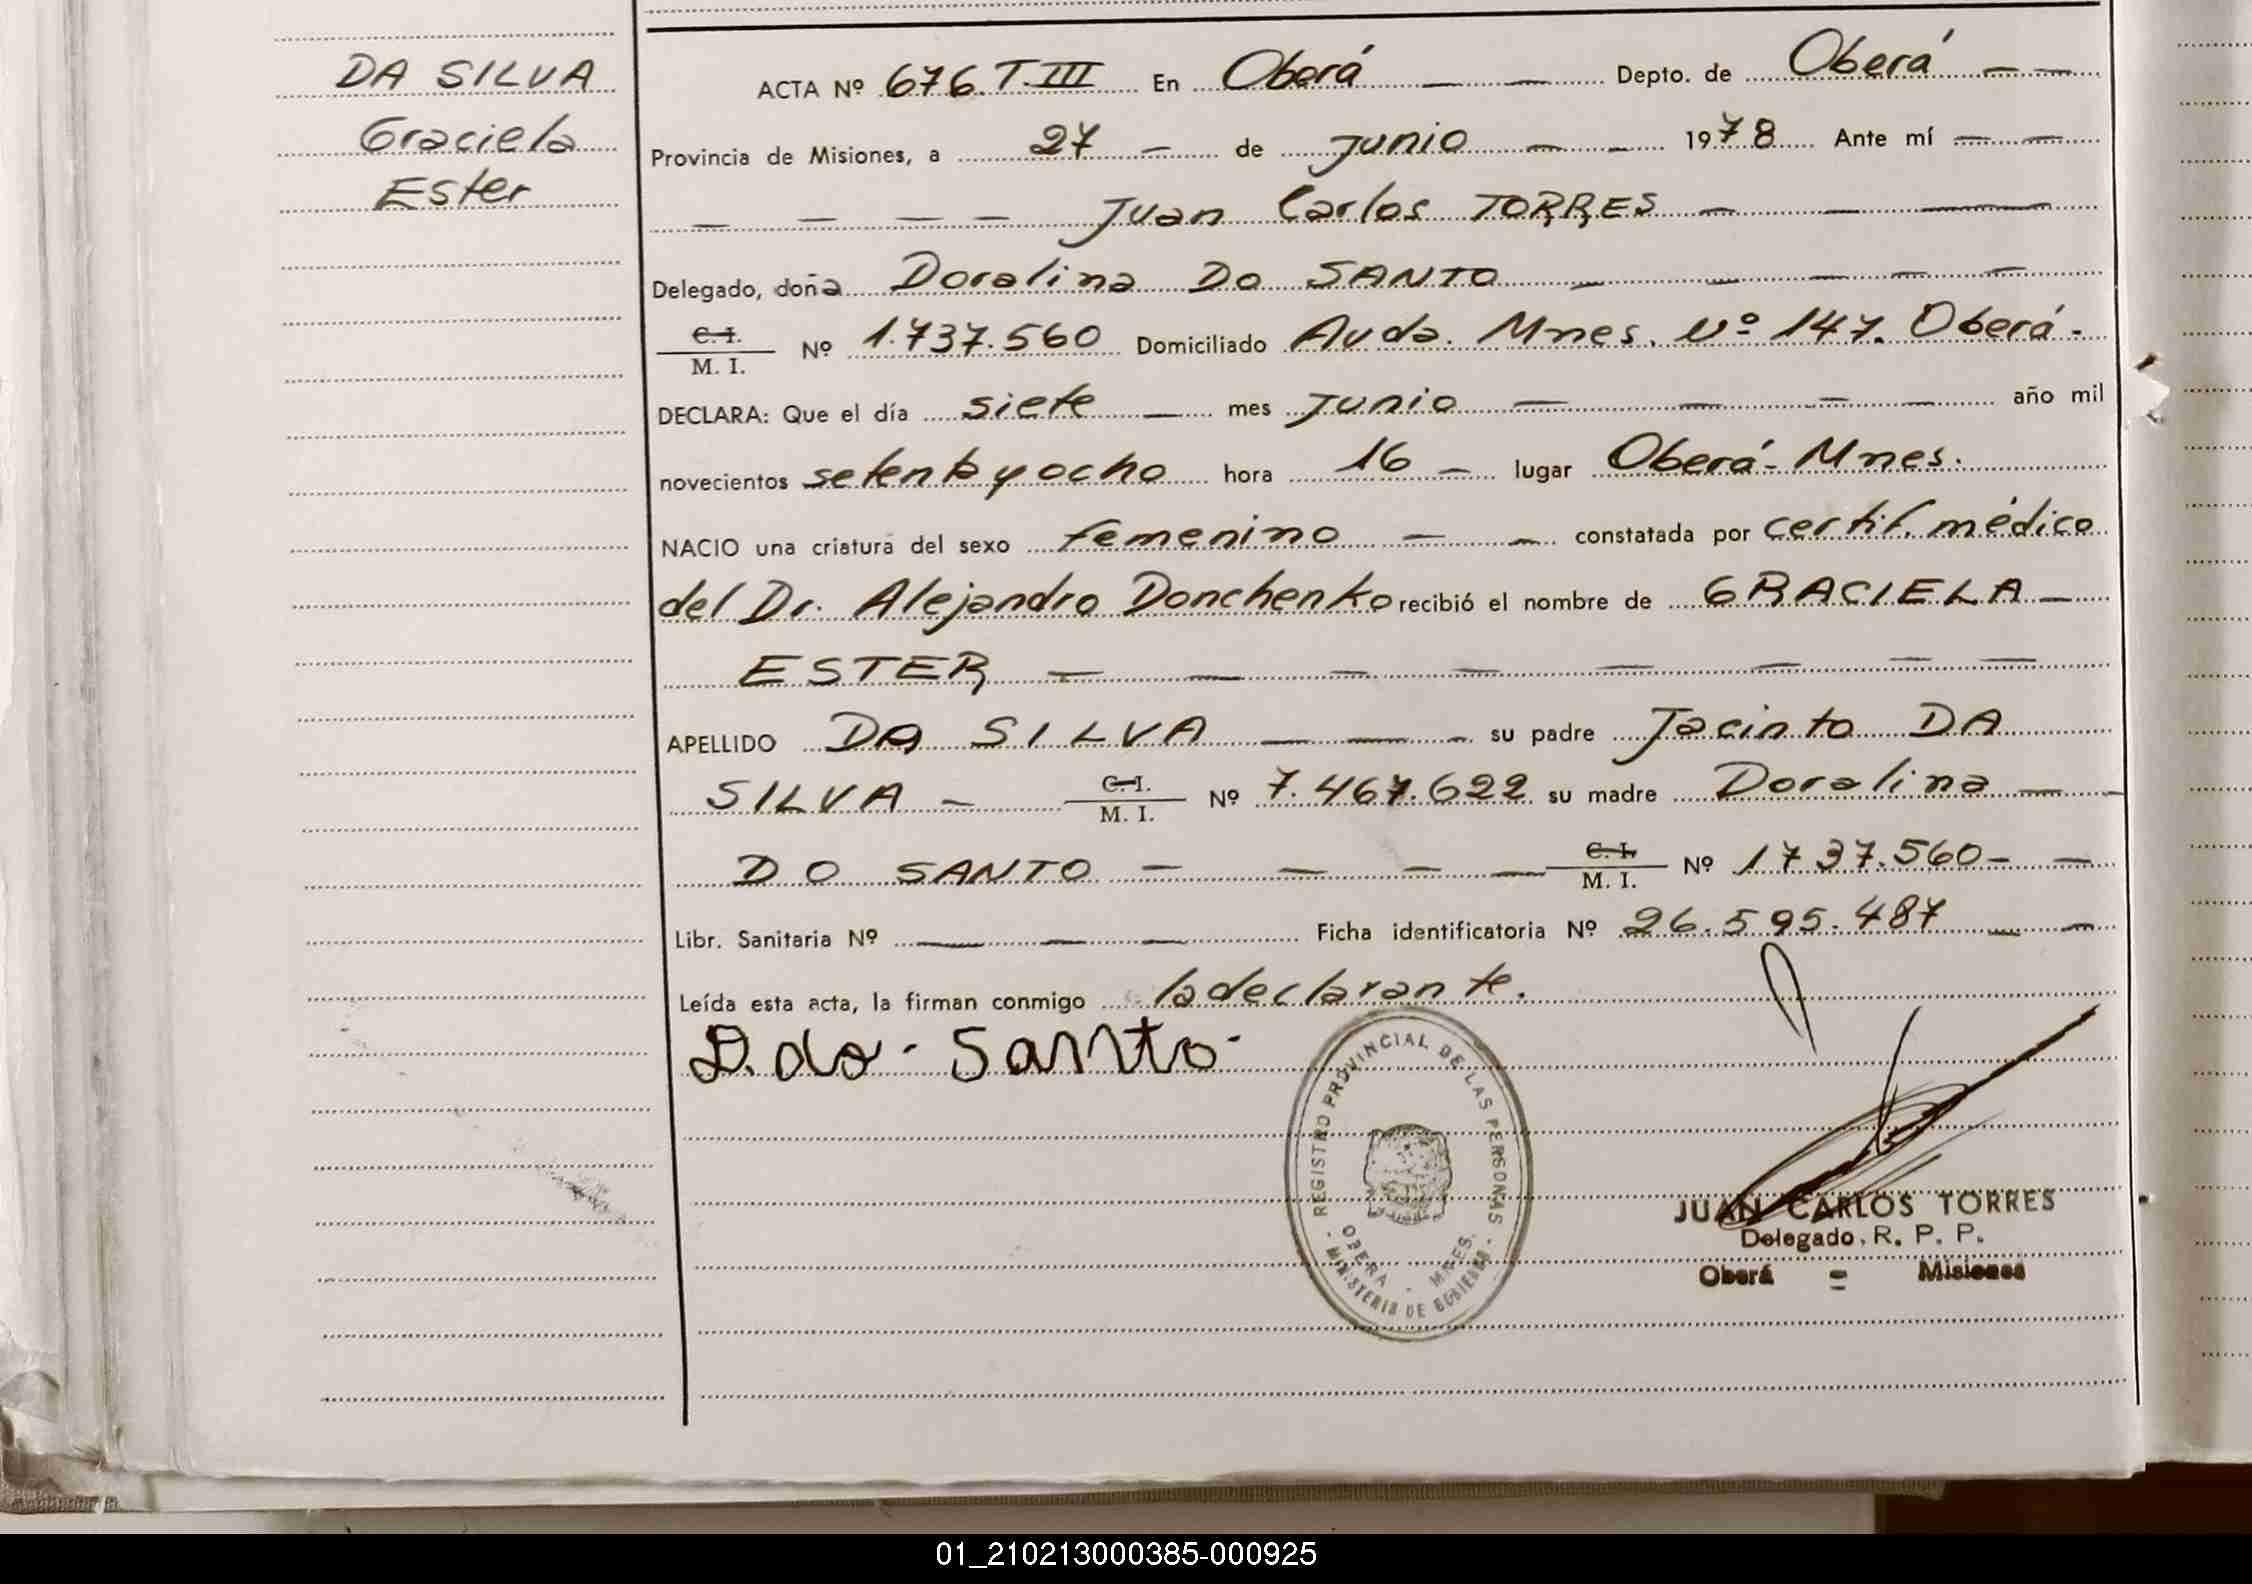 DA SILVA
Graciela
Ester
ACTA Nº 676. T. III En Oberá Depto. de Oberá
Provincia de Misiones, a 27 de junio 1978 Ante mí
Juan Carlos TORRES
Delegado, doña Doralina Do SANTO
C. I.
M. I. Nº 1.737.560 Domiciliado Avda. Mnes. Nº 147. Oberá.
DECLARA: Que el día siete mes junio año mil
novecientos setenta y ocho hora 16 lugar Oberá - Mnes.
NACIO una criatura del sexo femenino constatada por certif. médico
del Dr. Alejandro Donchenko recibió el nombre de GRACIELA
ESTER
APELLIDO DA SILVA su padre Jacinto DA
SILVA C. I. M. I. Nº 7.467.622 su madre Doralina
DO SANTO C. I. M. I. Nº 1737.560
Libr. Sanitaria Nº Ficha identificatoria Nº 26.595.487
Leída esta acta, la firman conmigo la declarante.
D. do - Santo -
REGISTRO PROVINCIAL DE LAS PERSONAS
OBERA - MNES.
- MINISTERIO DE GOBIERNO -
JUAN CARLOS TORRES
Delegado, R. P. P.
Oberá - Misiones
01_210213000385-000925